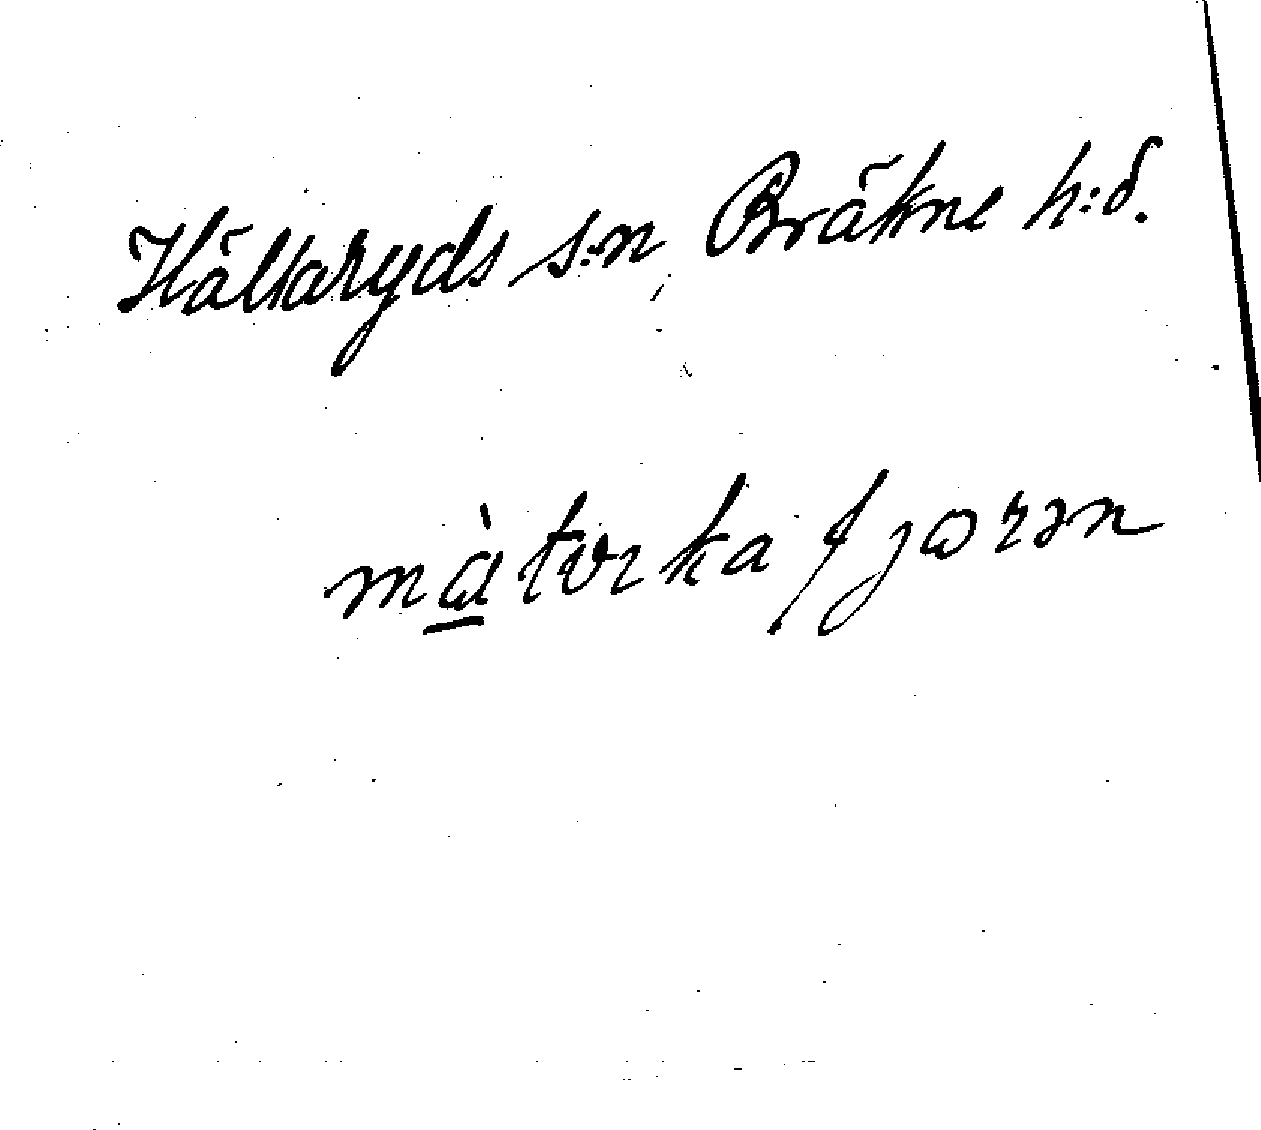 Hällaryds s:n, Bräkne h:d.
màtvrka fjorən